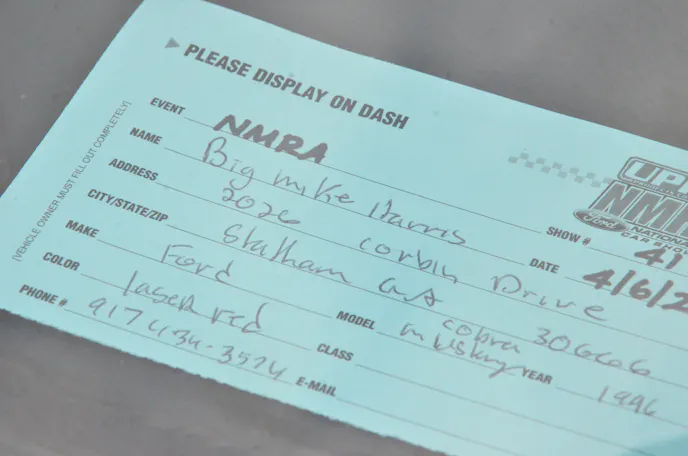 PLEASE DISPLAY ON DASH
(VEHICLE OWNER MUST FILL OUT COMPLETELY)
EVENT NMRA
NAME Big Mike Harris SHOW # 41
ADDRESS 2026 Corbin Drive DATE 4/6/2
CITY/STATE/ZIP Statham GA 30666
MAKE Ford MODEL Cobra Mustang YEAR 1996
COLOR laser red CLASS
PHONE # E-MAIL
UPR
NMR
Ford NATION
CAR SHOW